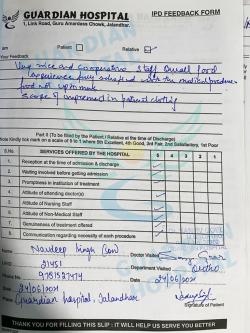 GUARDIAN HOSPITAL
IPD FEEDBACK FORM
1, Link Road, Guru Amardass Chowk, Jalandhar.
am Patient Relative
Your Feedback
Very nice and cooperative staff. Overall good
experience fully satisfied with the medical procedure
food not upto mark
scope of improvement in patient
Part II (To be filled by the Patient / Relative at the time of Discharge)
Note Kindly tick mark on a scale of 5 to 1 where 5th Excellent, 4th Good, 3rd Fair, 2nd Satisfactory, 1st Poor
S.No. SERVICES OFFERED BY THE HOSPITAL 5 4 3 2 1
1. Reception at the time of admission & discharge
2. Waiting involved before getting admission
3. Promptness in institution of treatment
4. Attitude of attending doctor(s)
5. Attitude of Nursing Staff
6. Attitude of Non-Medical Staff
7. Genuineness of treatment offered
8. Communication regarding necessity of each procedure
Name Navdeep Singh
Doctor Visited
31451
Department Visited Ortho
Date 24/06/2021
24/06/2021
Guardian hospital, Jalandhar
Signature of Patient
THANK YOU FOR FILLING THIS SLIP : IT WILL HELP US SERVE YOU BETTER